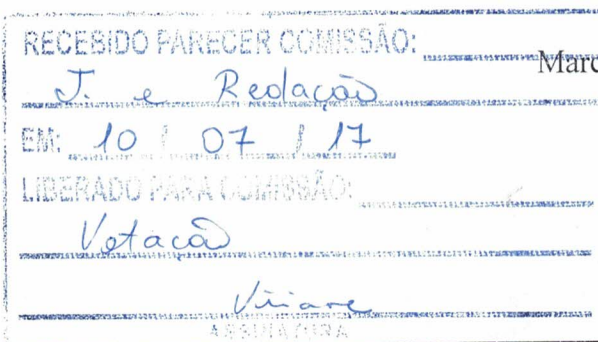 RECEBIDO PARECER COMISSÃO:
Marc
J. e Redação
EM: 10 / 07 / 17
LIBERADO PARA COMISSÃO:
Votacão
Viviane
ASSINATURA